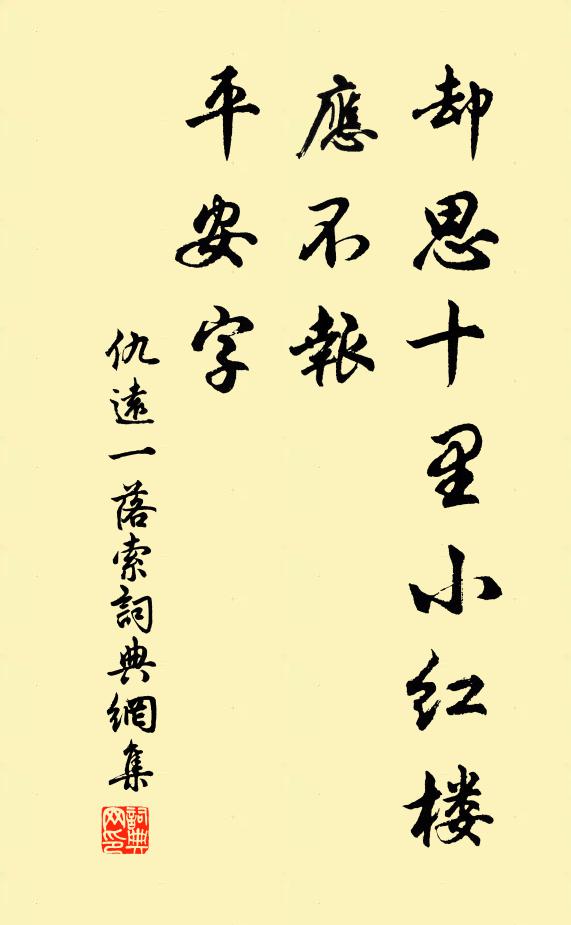 却思十里小红楼
應不報
平安字
仇遠一落索詞典網集
詞典網印